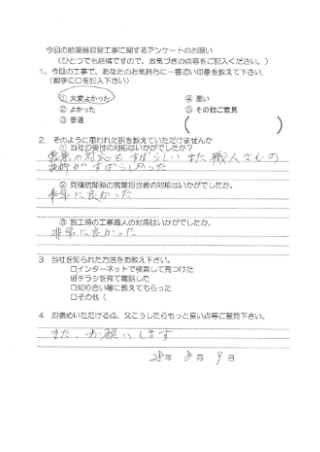 今回の給湯器取替工事に関するアンケートのお願い
(ひとつでも結構ですので、お気づきの点等をご記入ください。)
1、今回の工事で、あなたのお気持ちに一番近い印象を教えて下さい。
(数字に○を記入下さい)
① 大変よかった ④ 悪い
② よかった ⑤ その他ご意見
③ 普通 ( )
2. そのように思われた訳を教えていただけませんか
① 当社の受付の対応はいかがでしたか?
営業の対応もすばらしいまた職人さんの
技術がすばらしかった
② 見積訪問時の営業担当者の対応はいかがでしたか。
非常に良かった
③ 施工時の工事職人の対応はいかがでしたか。
非常に良かった
3 当社を知られた方法をお教え下さい。
□インターネットで検索して見つけた
☑チラシを見て電話した
□知り合い等に教えてもらった
□その他(
4 お褒めいただける点、又こうしたらもっと良い点等ご意見下さい。
また、お願いします
28年 8月 9日